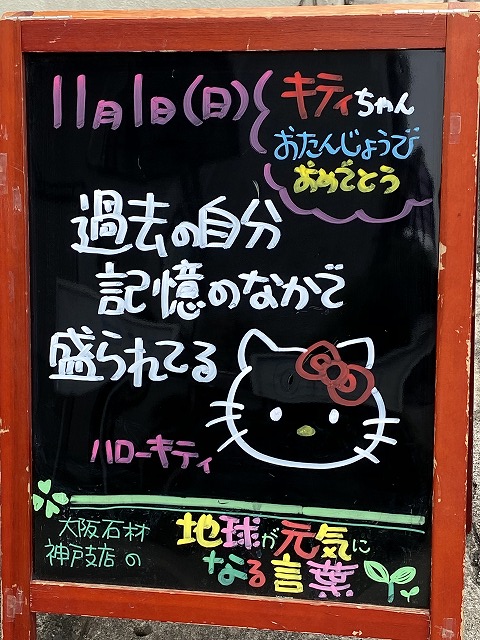 11月1日(日)
キティちゃん
おたんじょうび
おめでとう
過去の自分
記憶のなかで
盛られてる
ハローキティ
大阪石材
神戸支店の
地球が元気に
なる言葉